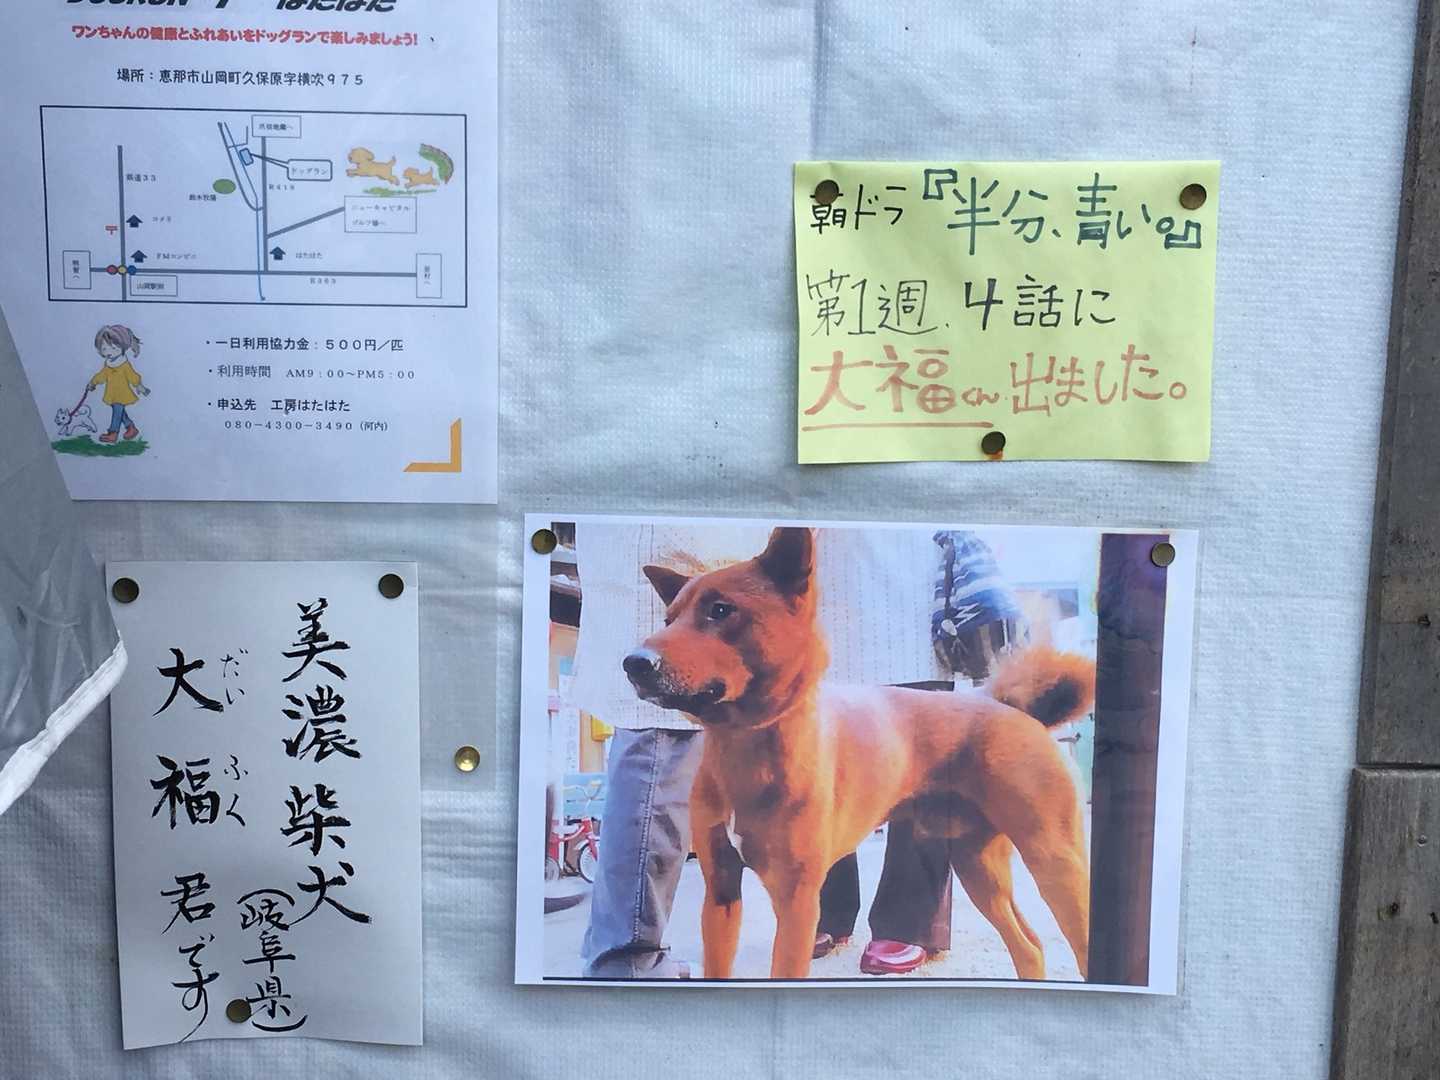 ワンちゃんの健康とふれあいをドッグランで楽しみましょう!
場所：恵那市山岡町久保原字横吹９７５
県道３３
コメリ
〒
ＦＭコンビニ
山岡駅前
明智へ
鈴木牧場
爪切地蔵へ
ドッグラン
Ｒ４１８
ニューキャピタル
ゴルフ場へ
はたはた
Ｒ３６３
岩村へ
・一日利用協力金：５００円／匹
・利用時間　ＡＭ９：００～ＰＭ５：００
・申込先　工房はたはた
０８０－４３００－３４９０（河内）
朝ドラ『半分、青い。』
第1週、4話に
大福くん出ました。
美濃柴犬
（岐阜県）
大福君です
だい ふく